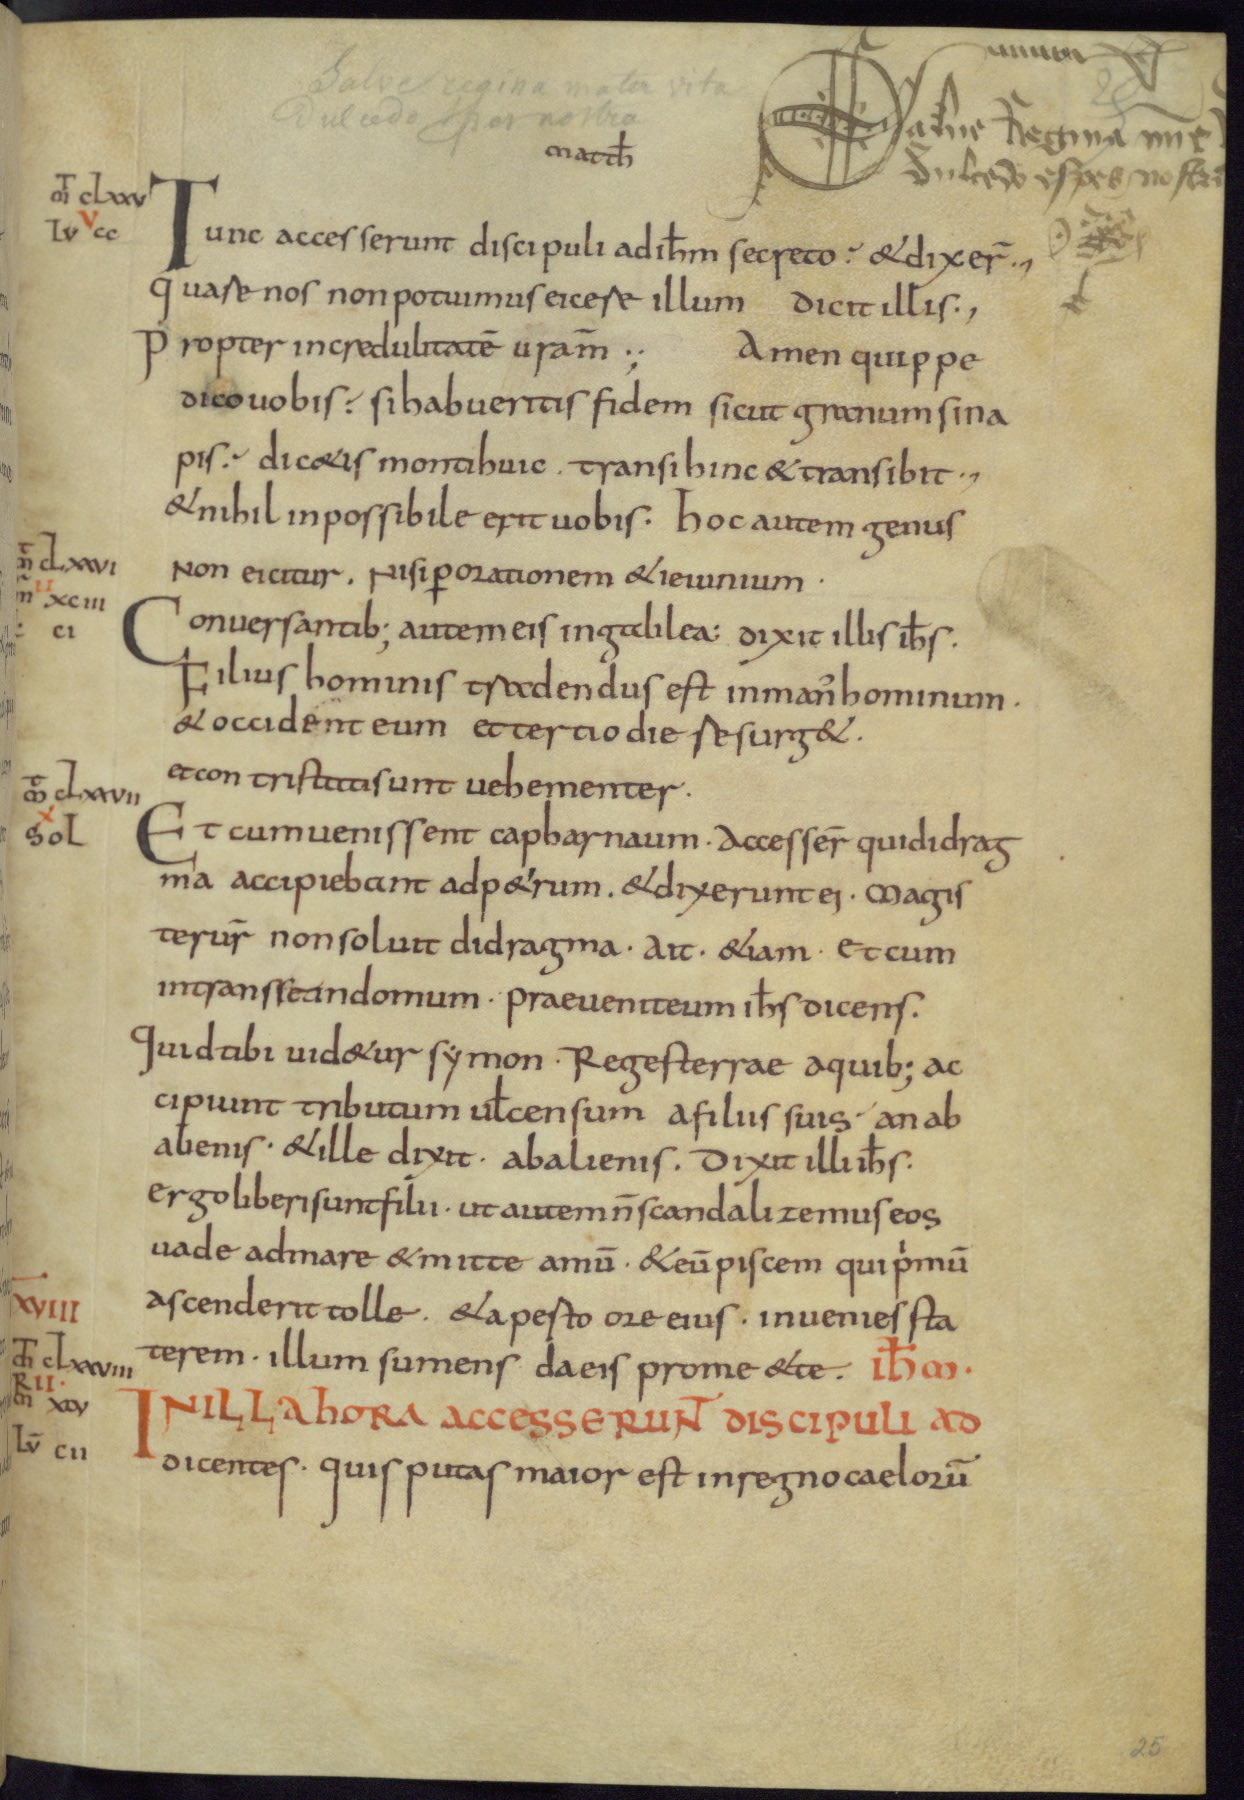 Salve regina mater vita
Dulcedo spes nostra
Salue Regina
Dulcedo espes nostra
matth̄
m̄t clxxv
v
Lv cc
Tunc accesserunt discipuli adih̄m secreto: &dixer̄.,
quare nos nonpotuimus eicere illum dicit illis.,
Propter incredulitatē uram̄ .,; Amen quippe
dicouobis: sihabueritis fidem sicut granumsina
pis: dic&is montihuic . transihinc &transibit .,
&nihil inpossibile erit uobis. hocautem genus
non eicitur. nisiꝑorationem &ieiunium .
m̄t clxxvi
II
m̄ xciii
ci
Conuersantib; autemeis ingalilea: dixit illis ih̄s.
Filius hominis tradendus est inman̄hominum .
&occident eum et tertio die resurg&.
etcon tristatisunt uehementer.
m̄t clxxvii
x
sol
Et cumuenissent capharnaum . Accesser̄ quididrag
ma accipiebant adp&rum . &dixerunt ei . Magis
terur̄ nonsoluit didragma . Ait . &iam . Et cum
intranssetindomum . praeueniteum ih̄s dicens.
Quidtibi uid&ur sẏmon . Regesterrae aquib; ac
cipiunt tributum ul̄censum afiliis suis . an ab
alienis . &ille dixit . abalienis . Dixit illi ih̄s.
ergoliberisuntfilii . ut autem n̄scandalizemus eos
uade admare &mitte amū . &eū piscem qui pͥmū
ascenderit tolle . &apesto ore eius . inuenies sta
terem . illum sumens daeis prome &te . ih̄m .
XVIII
m̄t clxxviii
RII.
m̄ xcv
Lv̄ cii
INILLA hora accesserunt̄ discipuli ad
dicentes . quis putas maior est inregnocaelorū
25